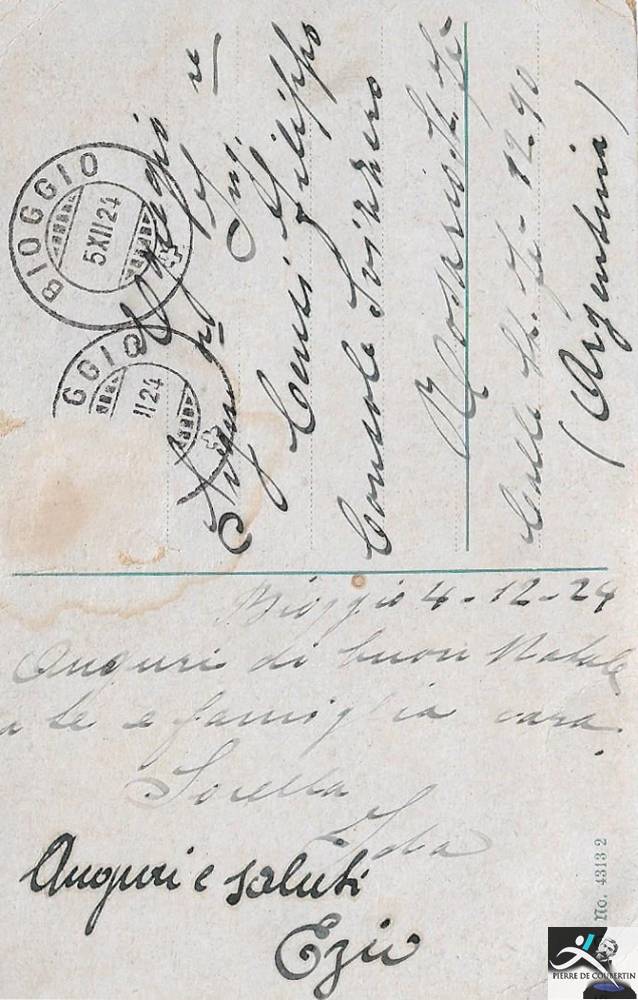 BIOGGIO
5XII24
GGIO
II24
Egregio
Signor
Ing. re
Censi Filippo
Console Svizzero
Rosario St. Fe
Calle St. Fe - 1290
(Argentina)
Bioggio 4-12-24
Auguri di buon Natale
a te e famiglia cara
Sorella
Ida
Auguri e saluti
Ezio
No. 4313 2
PIERRE DE COUBERTIN